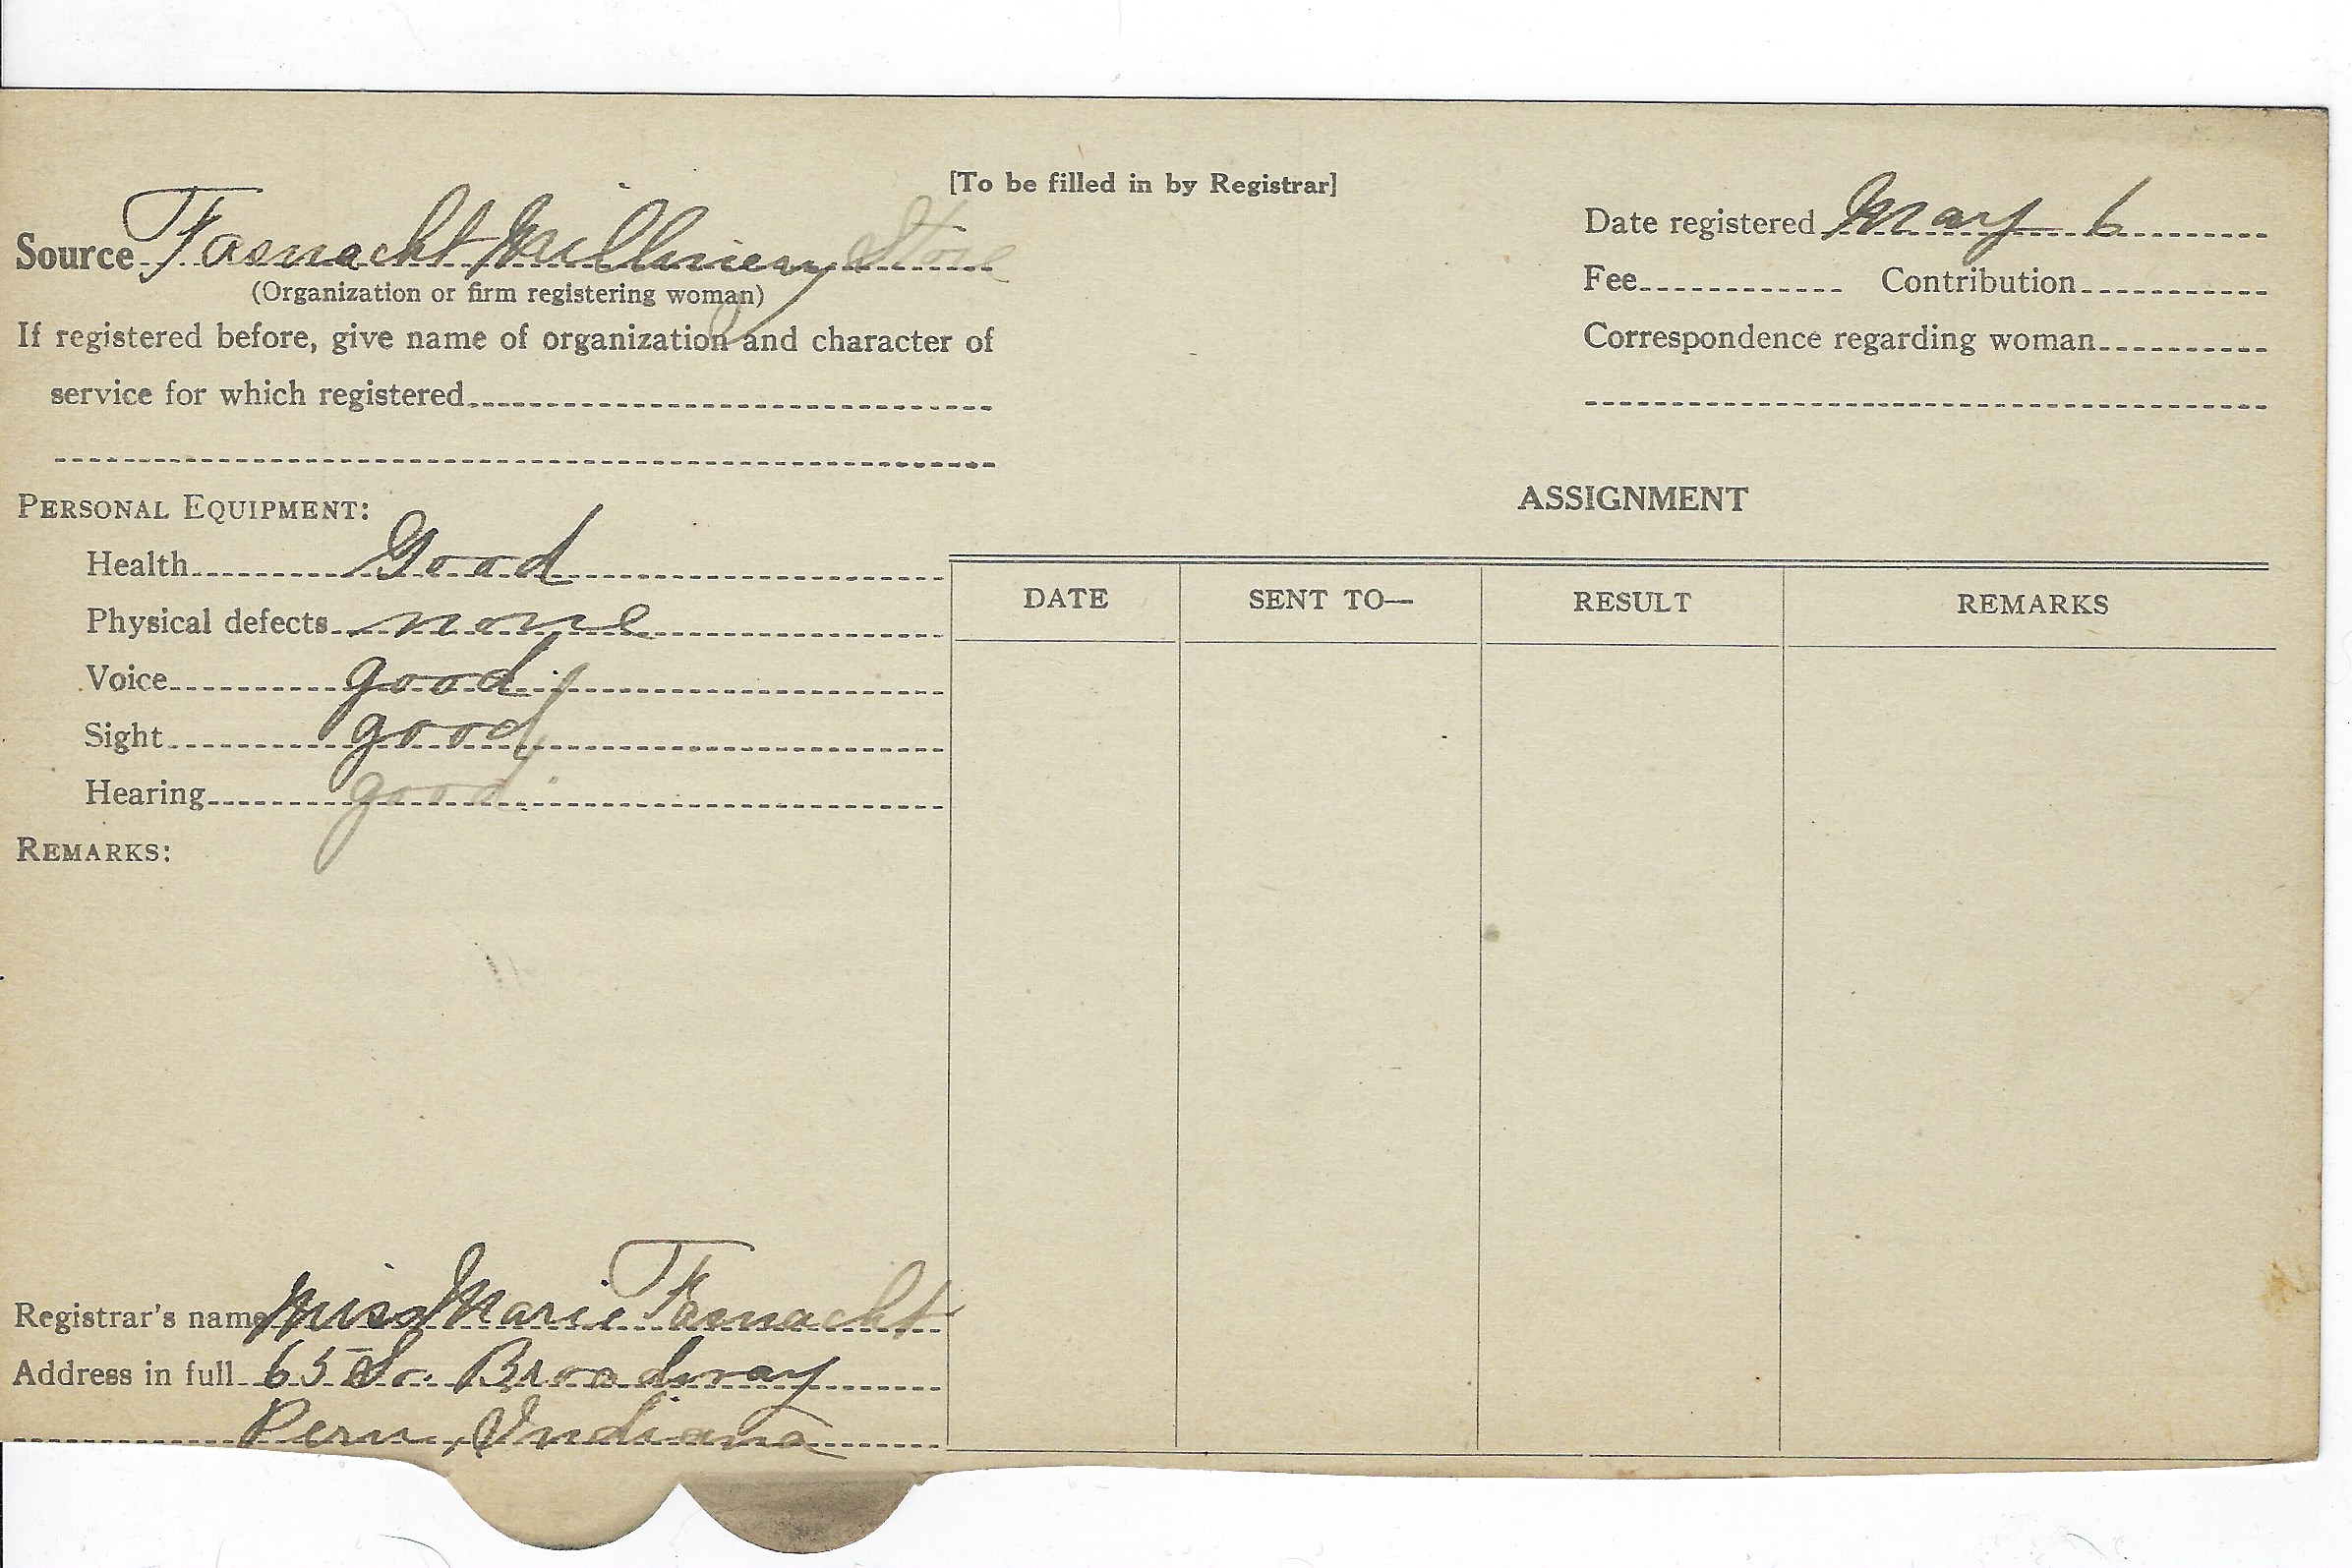 [To be filled in by Registrar]
Source Fasnacht Millinery Store
(Organization or firm registering woman)
If registered before, give name of organization and character of
service for which registered
Date registered May 6
Fee Contribution
Correspondence regarding woman
PERSONAL EQUIPMENT:
Health Good
Physical defects none
Voice good
Sight good
Hearing good
REMARKS:
Registrar's name Miss Marie Fasnacht
Address in full 65 So. Broadway
Peru, Indiana
ASSIGNMENT
DATE SENT TO— RESULT REMARKS